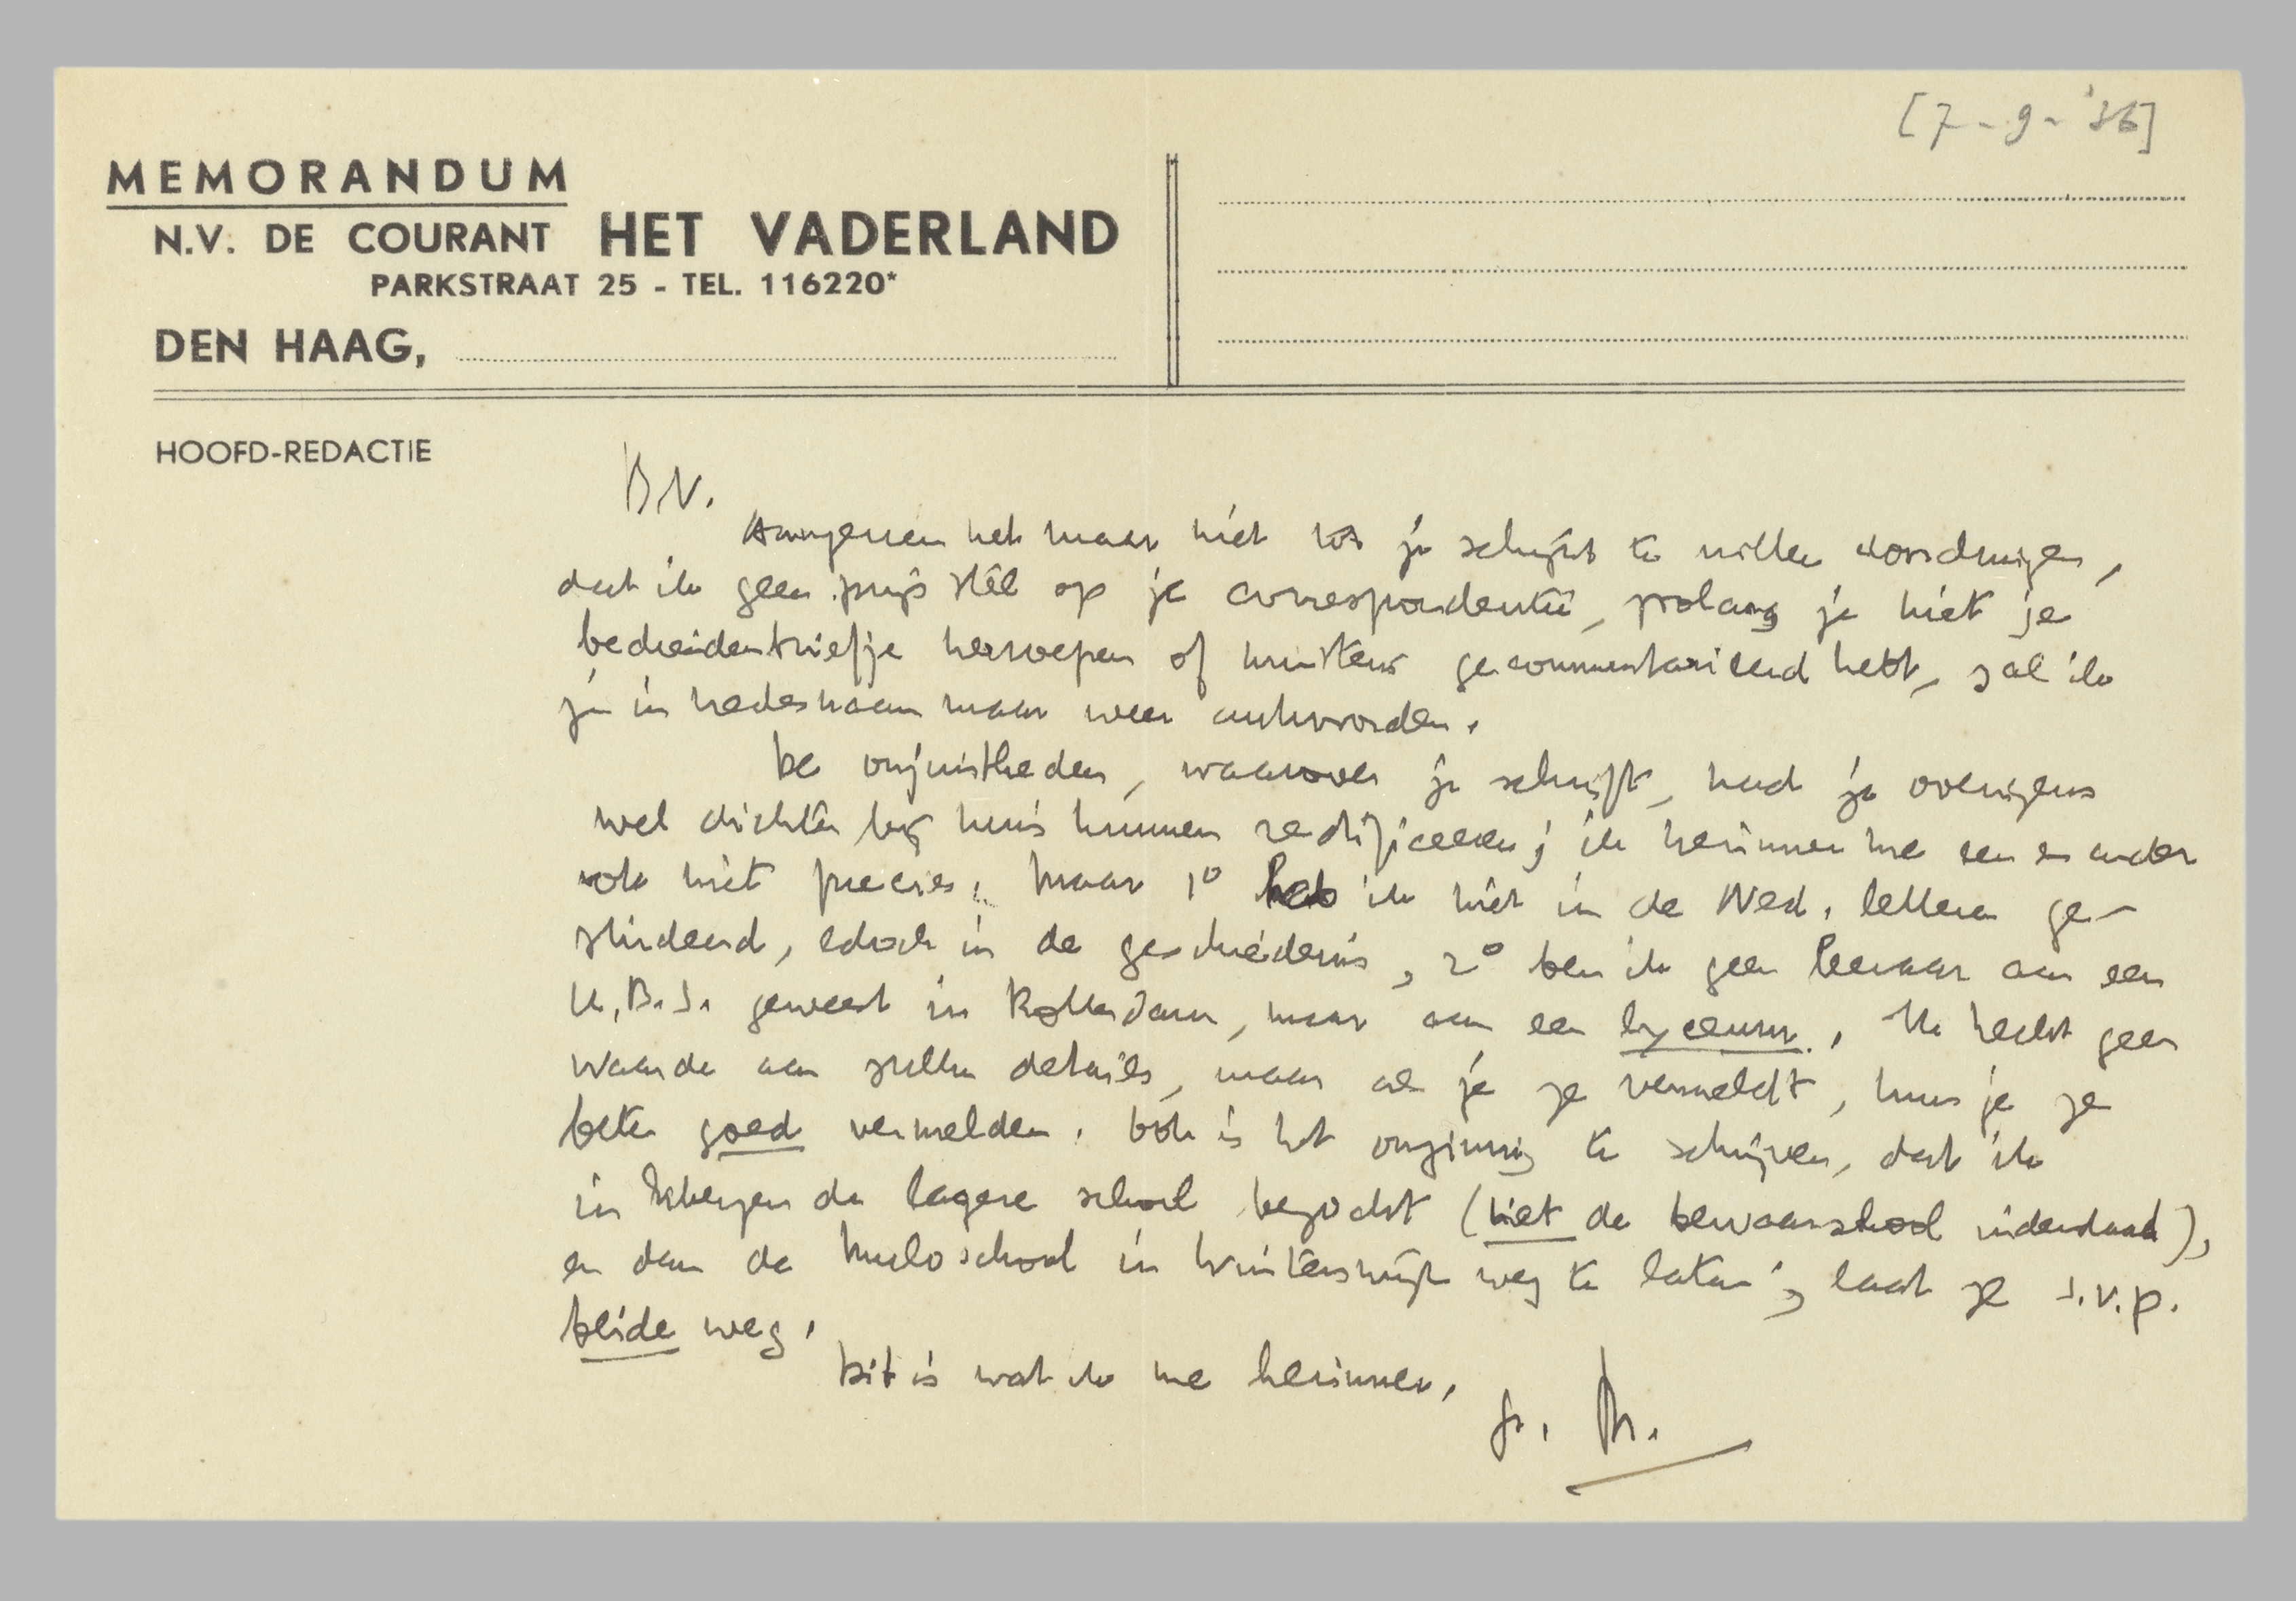 [7-9-'36]
MEMORANDUM
N.V. DE COURANT HET VADERLAND
PARKSTRAAT 25 - TEL. 116220*
DEN HAAG,
HOOFD-REDACTIE
B.V.
Aangezien het maar niet tot je schijnt te willen doordringen,
dat ik geen prijs stel op je correspondentie, zolang je niet je
bedreidenbriefje herroepen of minstens gecommentarieerd hebt, zal ik
je in vredesnaam maar weer antwoorden.
De onjuistheden, waarover je schrijft, had je overigens
wel dichter bij huis kunnen rectificeeren; ik herinner me een en ander
ook niet precies. Maar 1° heb ik niet in de Ned. letteren ge-
studeerd, edoch in de geschiedenis, 2° ben ik geen leeraar aan een
H.B.S. geweest in Rotterdam, maar aan een lyceum. Ik hecht geen
waarde aan zulke details, maar als je ze vermeldt, kun je ze
beter goed vermelden. Ook is het onzinnig te schrijven, dat ik
in Eibergen de lagere school bezocht (niet de bewaarschool inderdaad),
en dan de Muloschool in Winterswijk weg te laten; laat ze s.v.p.
beide weg.
Dit is wat ik me herinner.
gr. M.